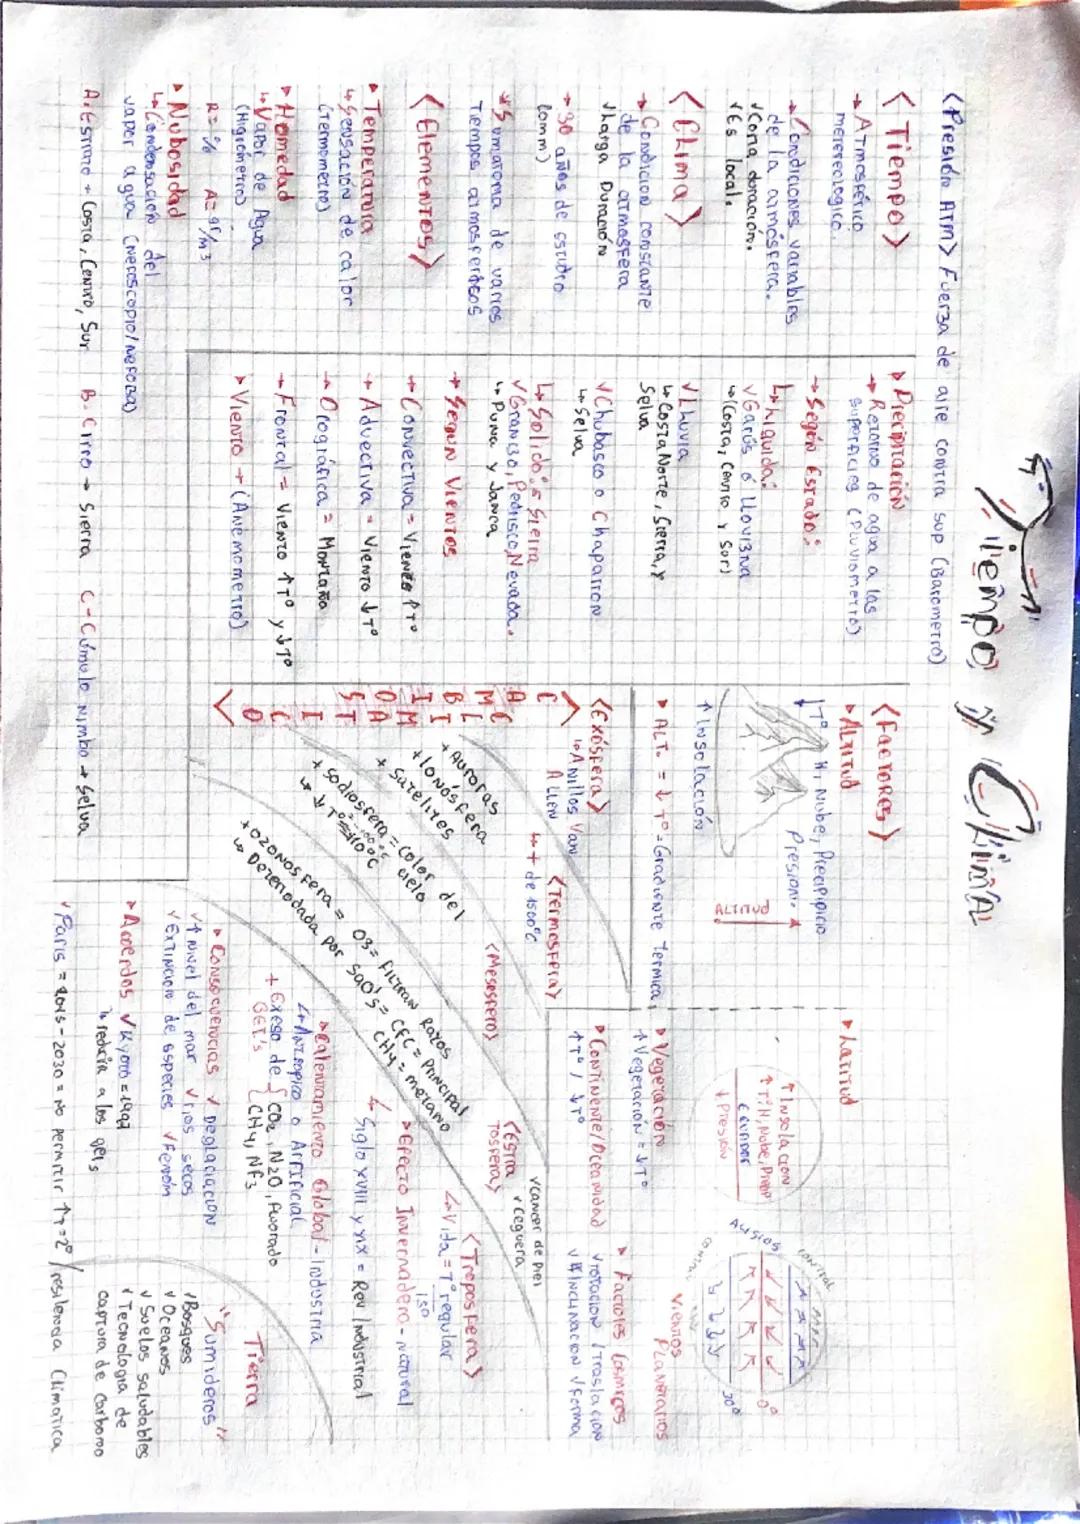 Tiempo y Clima
<Presión ATM> Fuerza de aire contra sup (Barometro)
<Tiempo>
→ Atmosférico
metereologico
→ Condiciones variables
de la atmósfera.
√ Corta duración.
√ Es local.
<Clima>
→ Condicion constante
de la atmosfera
√ larga Duración
→ 30 años de estudio
(omm)
Sumatoria de varios
tiempos atmosfericos
<Elementos>
▸ Temperatura
↳ Sensación de calor
(termometro)
▸ Humedad
↳ Vapor de Agua
(Higrómetro)
R = % A = gr/m3
▸ Nubosidad
↳ Condensación del
vapor a agua (nefoscopio/nefoBa)
A. Estrato → Costa, Centro, Sur B. Cirro → Sierra C - Cúmulo Nimbo → Selva
▸ Precipitación
→ Retorno de agua a las
superficies (Pluviometro)
→ Según Estado:
↳ Liquida:
√ Garúa ó Llovizna
↳ (Costa, centro y Sur)
√ Lluvia
↳ Costa Norte, Sierra, y
Selva
√ Chubasco o Chaparron
↳ Selva
↳ Solido: Sierra
√ Granizo, Pedrisco, Nevada.
↳ Puna y Janca
→ Según Vientos
→ Convectiva = Viento ↑T°
→ Advectiva = Viento ↓T°
→ Orográfica = Montaña
→ Frontal = Viento ↑T° y ↓T°
▸ Viento → (Anemometro)
<Factores>
▸ Altitud
↓T° H, Nube, Precipipicio
Presion.
ALTITUD
↑ Insolación
▸ ALT. = ↓T° = Gradiente Termica
▸ Latitud
↑ Insolacion
↑ T°, H, Nube, Precip
Ecuador
↓ Presion
Alisios
0°
30°
Vientos
Planetarios
▸ Vegetación
↑ Vegetación = ↓T°
▸ Continente/Oceanidad
↑T° / ↓T°
▸ Factores Cosmicos
√ rotacion / Traslacion
√ Inclinacion √ Forma
<Exósfera>
↳ Anillos Van
Allen
<Termosfera>
↳ + de 1500°C
+ Auroras
+ Ionósfera
+ Satelites
<Mesosfera>
+ Sodiosfera = Color del
cielo
<Estra
tosfera>
+ Ozonosfera = O3 = Filtran Rayos
↳ Deteriodada por SAO's = CFC = Principal
CH4 = metano
√ cancer de piel
√ ceguera
<Troposfera>
↳ Vida = T° regular
CAMBIO
CLIMATICO
▸ Efecto Invernadero - natural
↳ Siglo XVIII y XIX = Rev Industrial
▸ Calentamiento Global - Industria
↳ Antropico o Artificial
+ Exeso de { CO2, N2O, Fluorado
GEI's { CH4, NF3
▸ Consecuencias √ Deglaciacion
√ ↑ Nivel del mar √ rios secos
√ Extincion de especies √ Fenom
▸ Acuerdos √ Kyoto = 1997
↳ reducir a los geis
√ Paris = 2015 - 2030 = No permitir ↑T = 2° / resilencia Climatica
Tierra
"Sumideros"
√ Bosques
√ Oceanos
√ Suelos saludables
√ Tecnologia de
captura de carbono